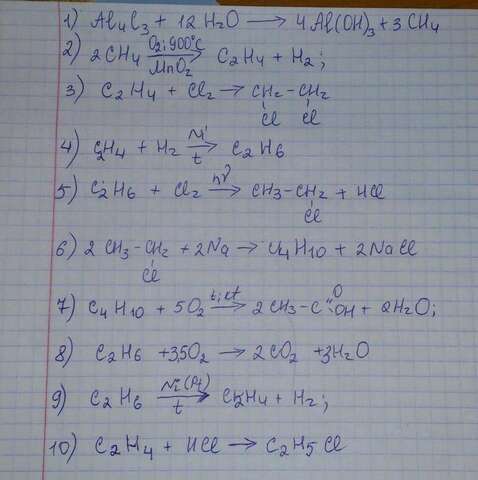 1) Al4C3 + 12 H2O → 4Al(OH)3 + 3CH4
2) 2CH4 O2; 900°C MnO2 → C2H4 + H2;
3) C2H4 + Cl2 → CH2-CH2
Cl Cl
4) C2H4 + H2 Ni t → C2H6
5) C2H6 + Cl2 hν → CH3-CH2 + HCl
Cl
6) 2CH3-CH2 + 2Na → C4H10 + 2NaCl
Cl
7) C4H10 + 5O2 t; kt → 2CH3-C=O OH + 2H2O;
8) C2H6 + 3,5O2 → 2CO2 + 3H2O
9) C2H6 Ni(Pt) t → C2H4 + H2;
10) C2H4 + HCl → C2H5Cl